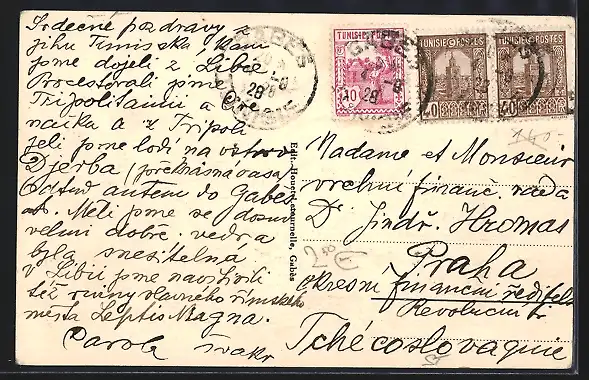 Srdečné pozdravy z
jihu Tuniska, kam
jsme dojeli z Libie
Procestovali jsme
Tripolitanii a
a z Tripoli
jeli jsme lodí na ostrov
Djerba (překrásná oasa)
Odtud autem do Gabes
Měli jsme se dosud
velmi dobře. vedra
byla snesitelná
V Libii jsme navštívili
též ruiny slavného římského
města Leptis Magna.
Karola
GABES
TUNISIE POSTES
10
GABES
28
TUNISIE POSTES
40
TUNISIE POSTES
40
140-
Madame et Monsieur
vrchní financ. rada
Dr Jindř. Hromas
Praha
okresní finanční ředitels
Revoluční
Tchécoslovaquie
Gabès